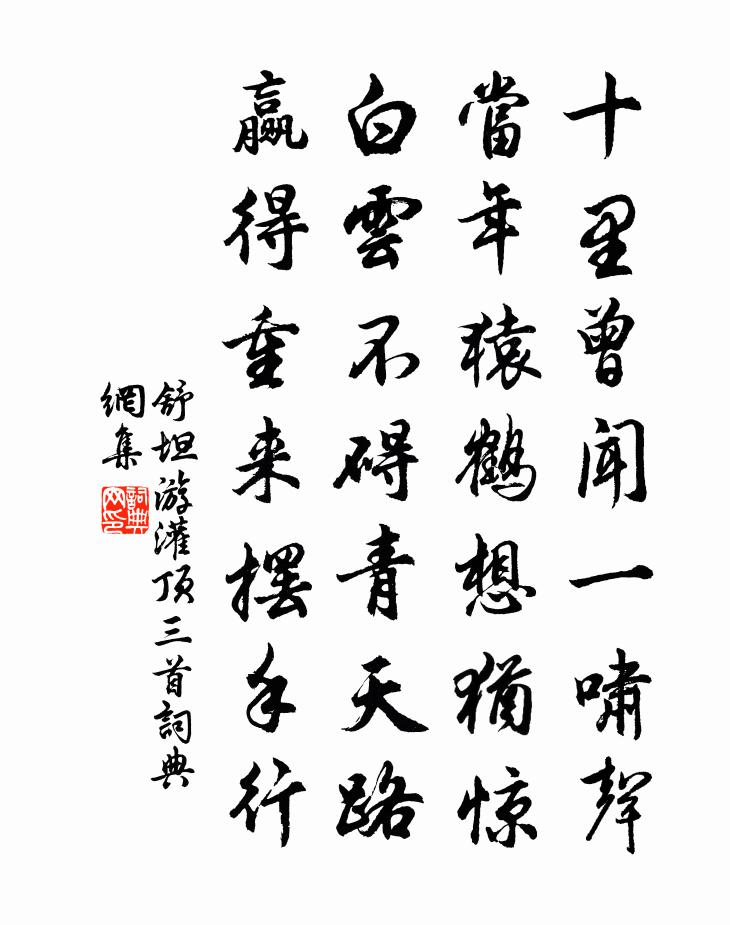 十里曾闻一啸聲
當年猿鹤想猶惊
白雲不碍青天路
赢得重来摆手行
舒坦游灌顶三首詞典
網集
詞典
网印